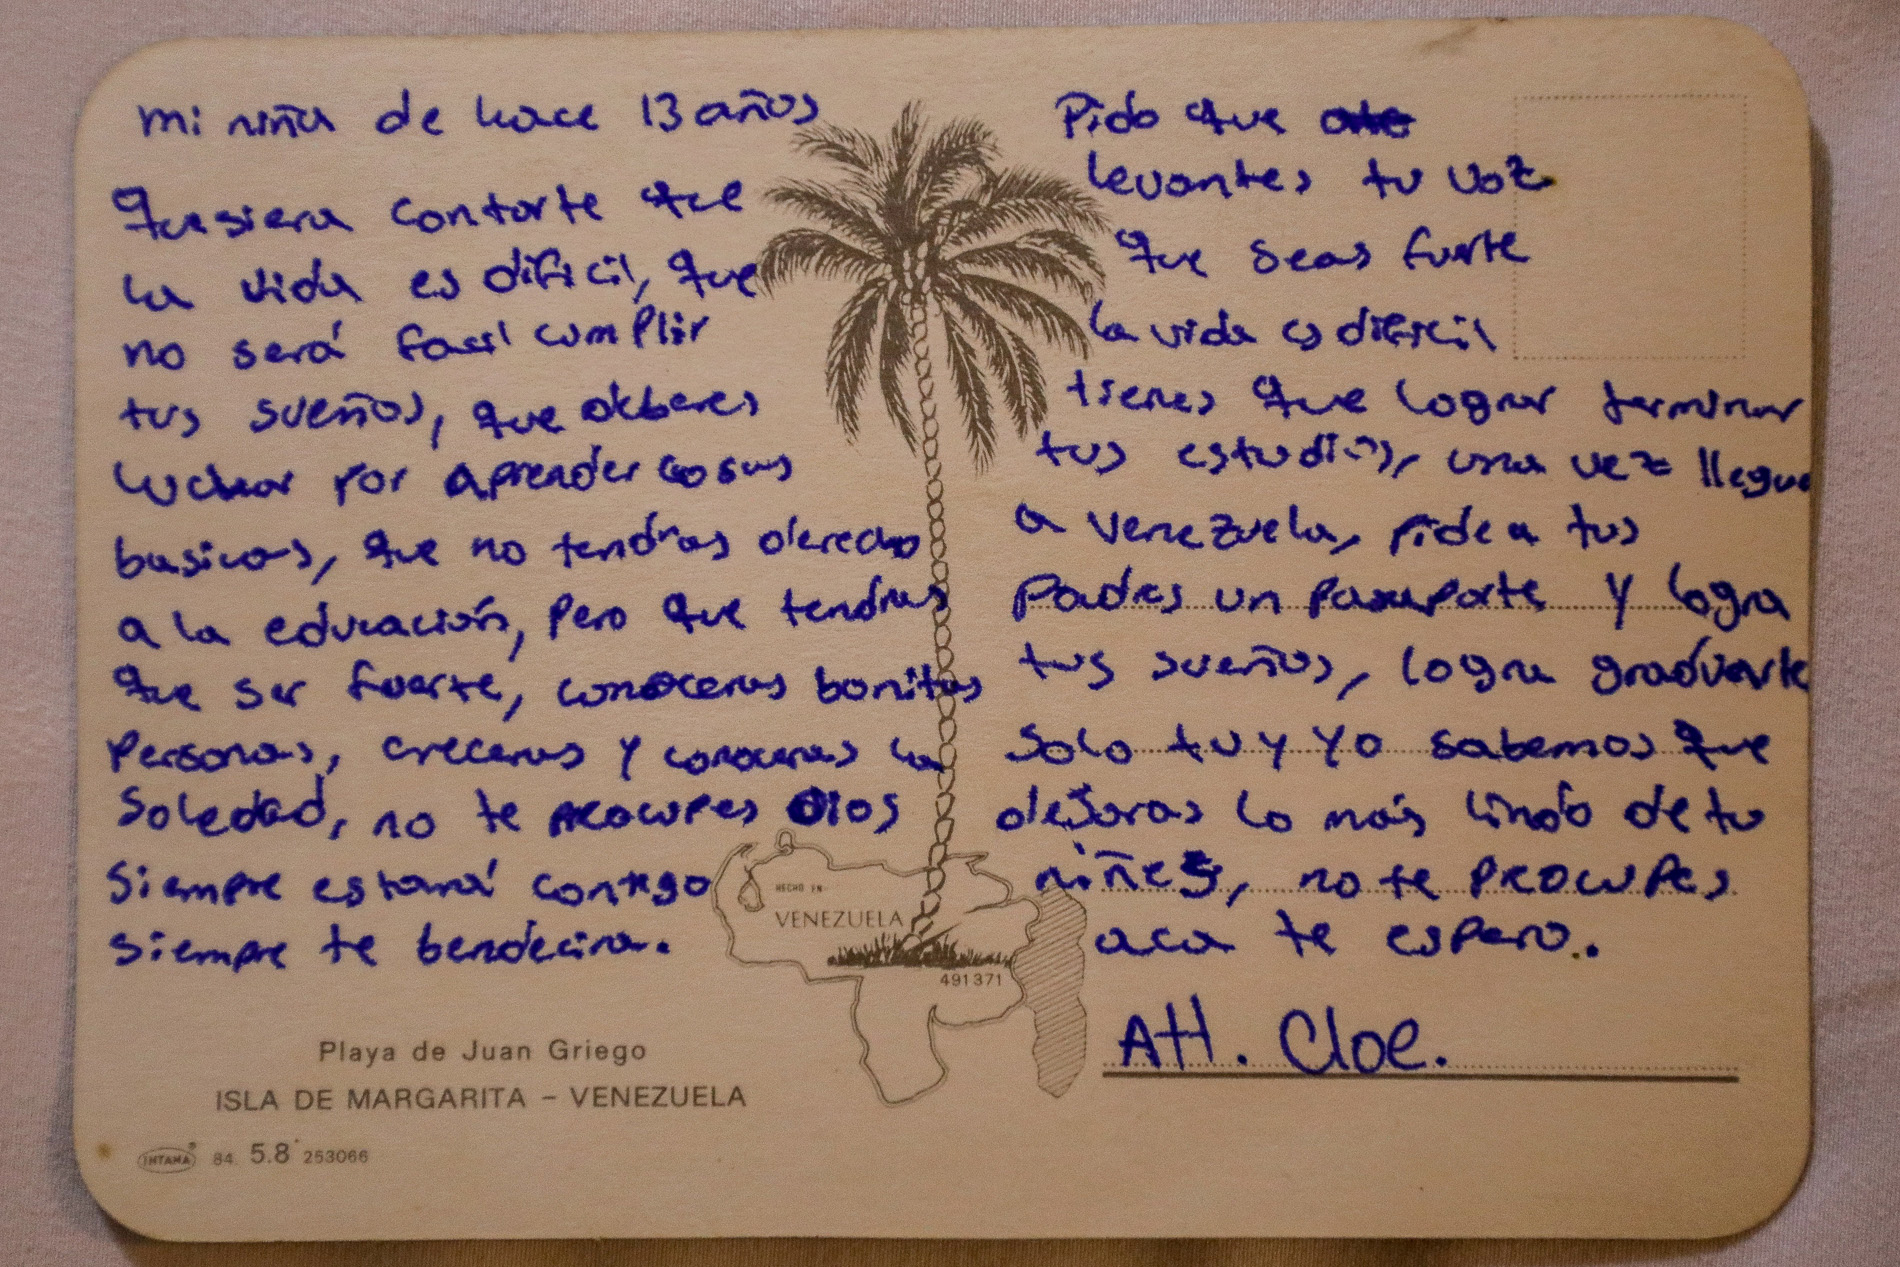 mi niña de hace 13 años
Quesiera contarte que
la vida es dificil, que
no será facil cumplir
tus sueños, que deberes
luchar por aprender cosas
basicas, que no tendras derecho
a la educación, pero que tendras
que ser fuerte, conoceras bonitas
personas, creceras y conoceras la
soledad, no te preocupes Dios
siempre estará contigo
siempre te bendecira.
Pido que
levantes tu voz
que seas fuerte
la vida es dificil
tienes que lograr terminar
tus estudios, una vez llegue
a Venezuela, pide a tus
padres un pasaporte y logra
tus sueños, logra graduarte
solo tu y yo sabemos que
dejaras lo más lindo de tu
niñez, no te preocupes
aca te espero..
Att. Cloe.
HECHO EN
VENEZUELA
491371
Playa de Juan Griego
ISLA DE MARGARITA – VENEZUELA
INTANA 84. 5.8 253066